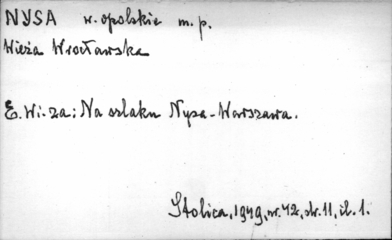 NYSA w. opolskie m. p.
Wieża Wrocławska
E. Wi-za: Na szlaku Nysa-Warszawa.
Stolica, 1949, nr. 42, str. 11, il. 1.